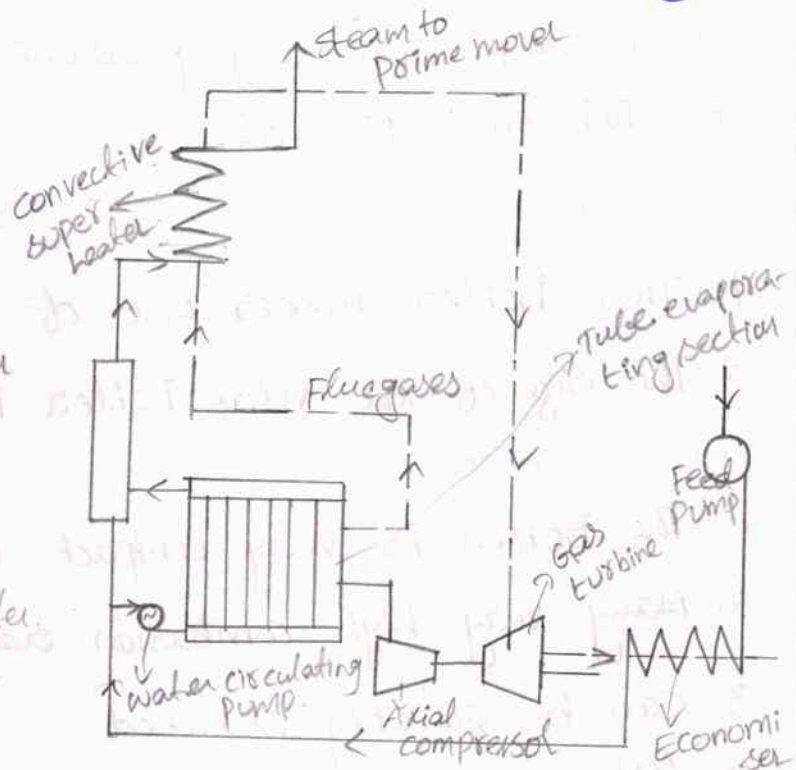 steam to
prime mover
convective
super
heater
Flue gases
Tube evapora-
ting section
Feed
Pump
Gas
turbine
water circulating
pump
Axial
compressor
Economi
ser